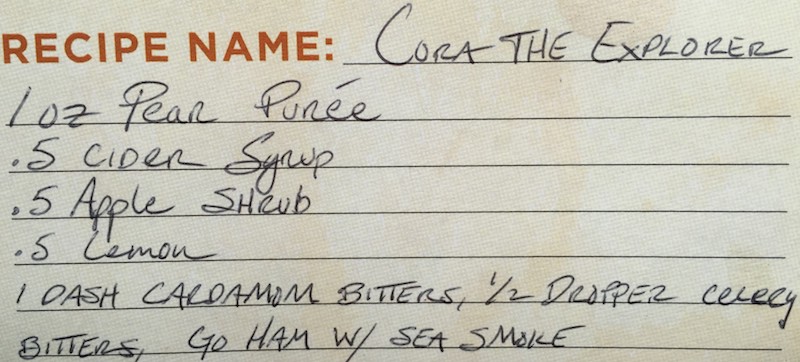 RECIPE NAME: CORA THE EXPLORER
1 oz Pear Purée
.5 CIDER Syrup
.5 Apple SHRUB
.5 Lemon
1 DASH CARDAMOM BITTERS, 1/2 DROPPER celery
BITTERS, GO HAM W/ SEA SMOKE